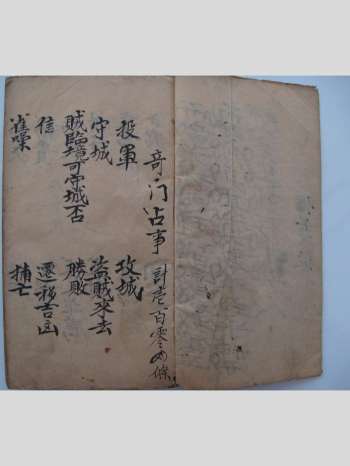 奇门占事 計壱百零四條
投軍 攻城
守城 盜賊來去
賊臨境可守城否 勝敗
信 遷移吉凶
雀噪 捕亡